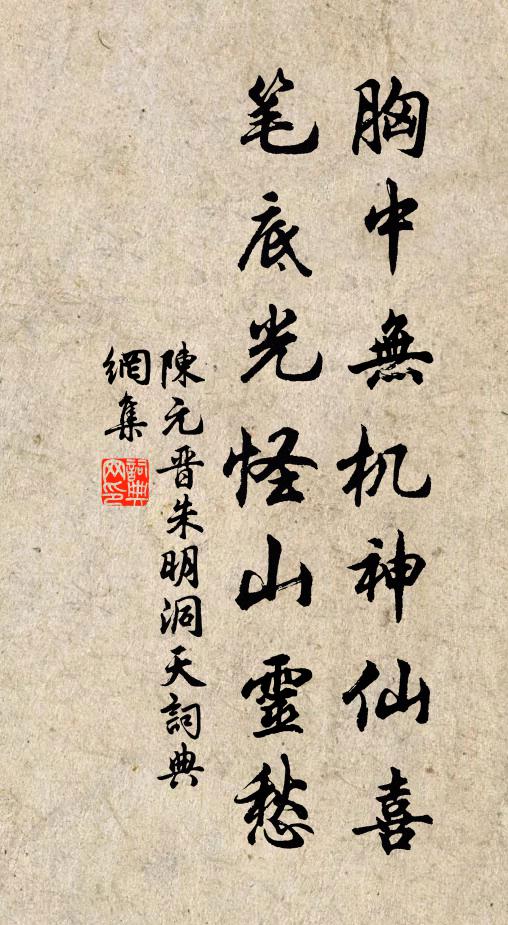 胸中無机神仙喜
笔底光怪山靈愁
陳元晋朱明洞天詞典
網集
詞典網印